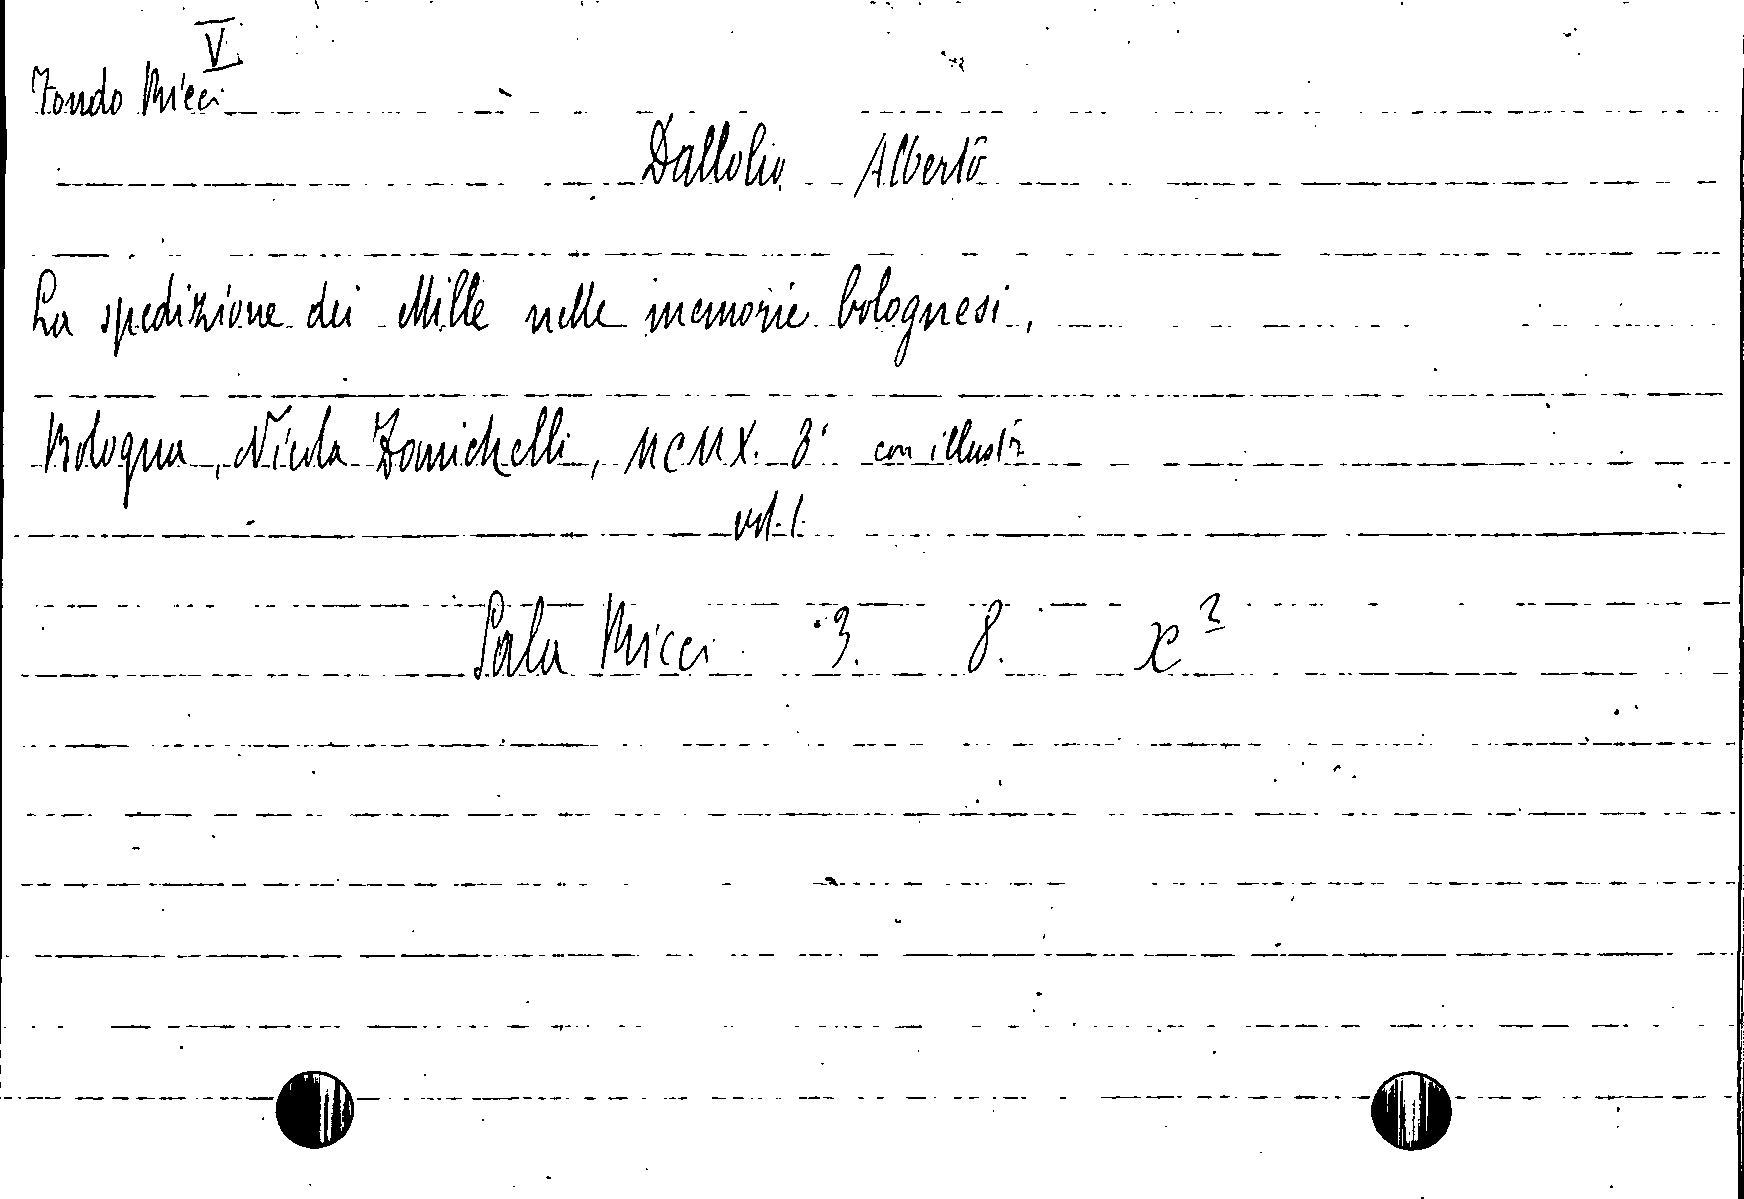 V
Fondo Ricci
Dallolio Alberto
La spedizione dei Mille nelle memorie bolognesi,
Bologna, Nicola Zanichelli, MCMX. 8° con illustr.
vol. 1.
Sala Ricci 3. 8. x²